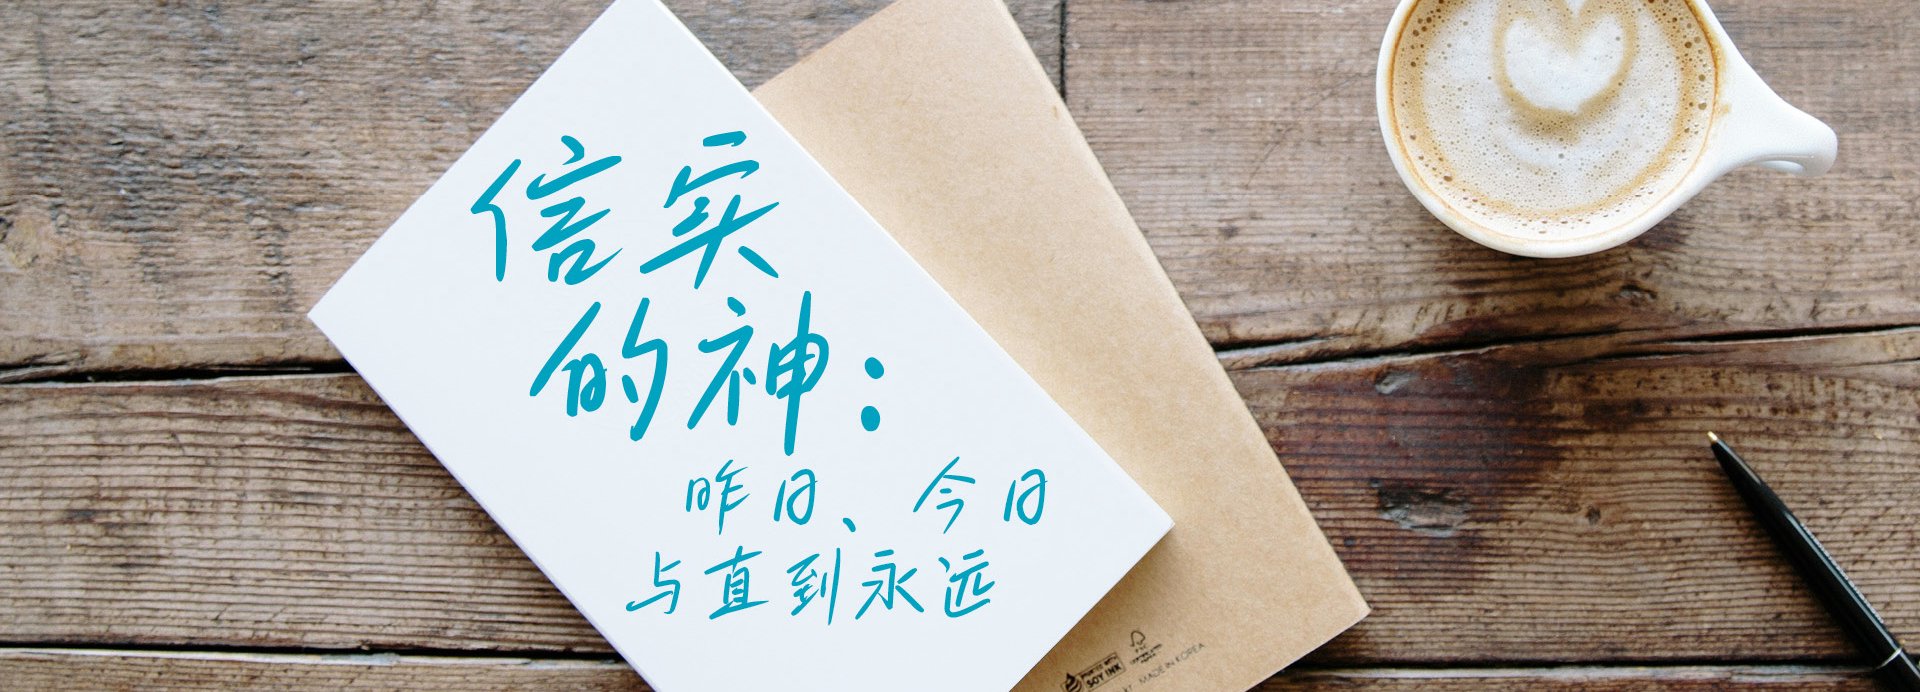 信实
的神：
昨日、今日
与直到永远
SOY INK
MADE IN KOREA